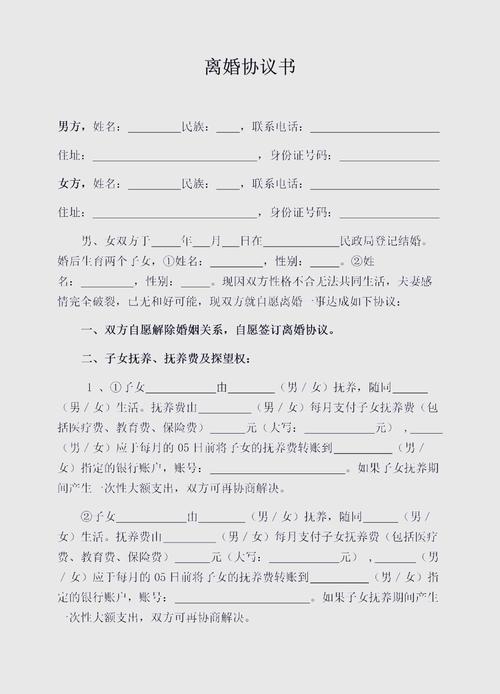 离婚协议书
男方，姓名：_________民族：____，联系电话：______________________
住址：____________________________，身份证号码：_________________
女方，姓名：_________民族：____，联系电话：______________________
住址：____________________________，身份证号码：_________________
男、女双方于_____年___月___日在_____________民政局登记结婚。
婚后生育两个子女，①姓名：_________，性别：____。②姓
名：_________，性别：____。现因双方性格不合无法共同生活，夫妻感
情完全破裂，已无和好可能，现双方就自愿离婚一事达成如下协议：
一、双方自愿解除婚姻关系，自愿签订离婚协议。
二、子女抚养、抚养费及探望权：
1 、①子女____________由__________（男／女）抚养，随同______
（男／女）生活。抚养费由_________（男／女）每月支付子女抚养费（包
括医疗费、教育费、保险费）______元（大写：____________元），_____
（男／女）应于每月的 05 日前将子女的抚养费转账到__________（男／
女）指定的银行账户，账号：_______________________。如果子女抚养期
间产生一次性大额支出，双方可再协商解决。
②子女____________由__________（男／女）抚养，随同_____（男／
女）生活。抚养费由_________（男／女）每月支付子女抚养费（包括医疗
费、教育费、保险费）_____元（大写：____________元），_____（男
／女）应于每月的 05 日前将子女的抚养费转账到__________（男／女）指
定的银行账户，账号：_______________________。如果子女抚养期间产生
一次性大额支出，双方可再协商解决。